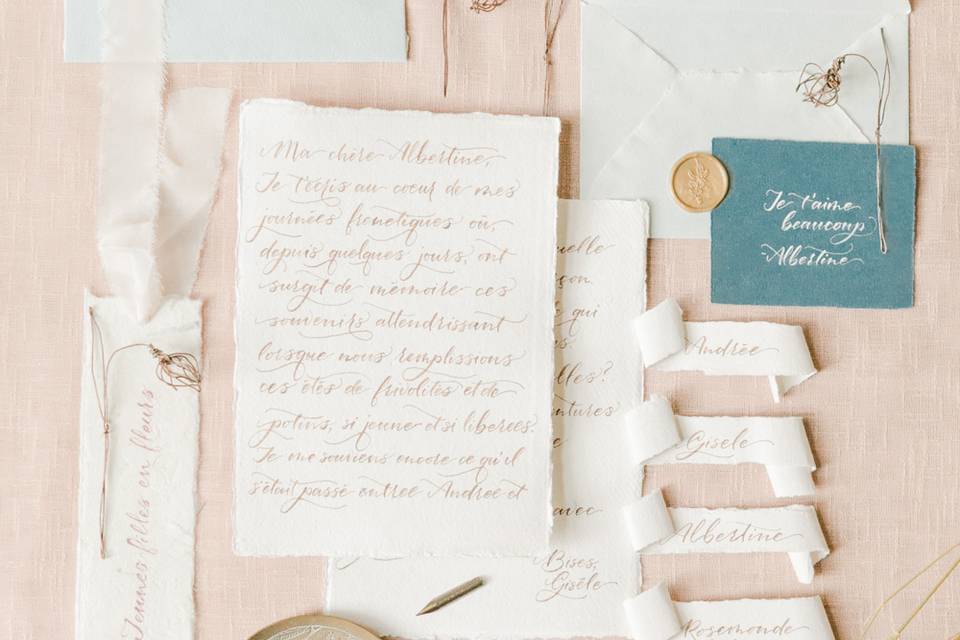 Ma chère Albertine,
Je t'écris au coeur de mes
journées frenetiques où,
depuis quelques jours, ont
surgit de mémoire ces
souvenirs attendrissant
lorsque nous remplissions
ces étés de frivolités et de
potins, si jeune et si liberées.
Je me souviens encore ce qu'il
s'était passé entree Andrée et
qui
Bises,
Gisèle
Je t'aime
beaucoup
Albertine
Andrée
Gisele
Albertine
Rosemonde
Jeunes filles en fleurs